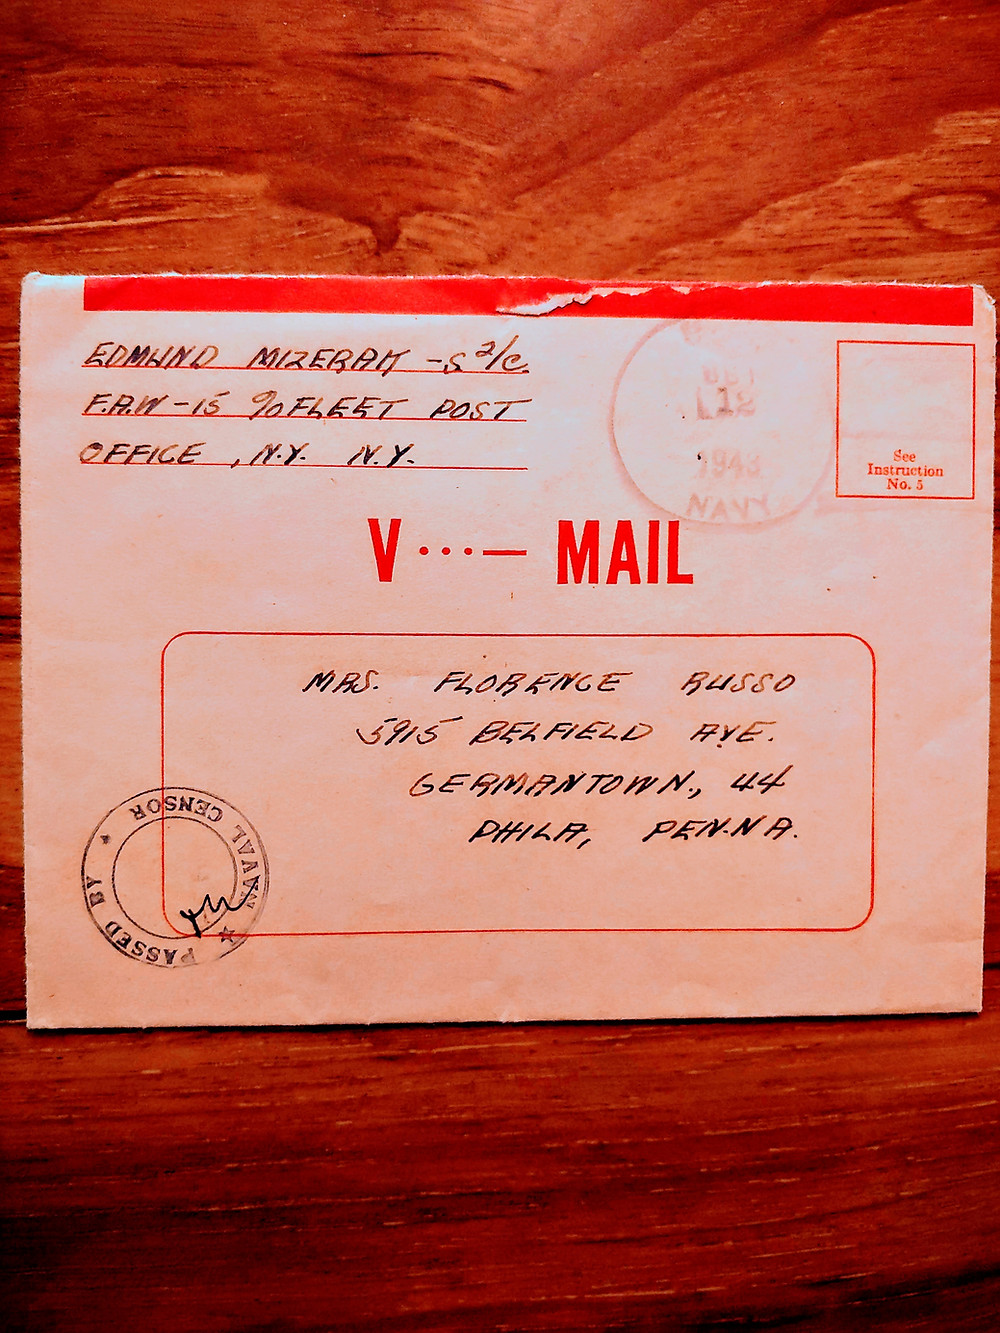 EDMUND MIZERAK - S 2/C.
F.A.W - 15 % FLEET POST
OFFICE , N.Y. N.Y.
12
1943
NAVY
See
Instruction
No. 5
V ···— MAIL
MRS. FLORENCE RUSSO
5915 BELFIELD AVE.
GERMANTOWN., 44
PHILA, PEN.N A.
PASSED BY NAVAL CENSOR